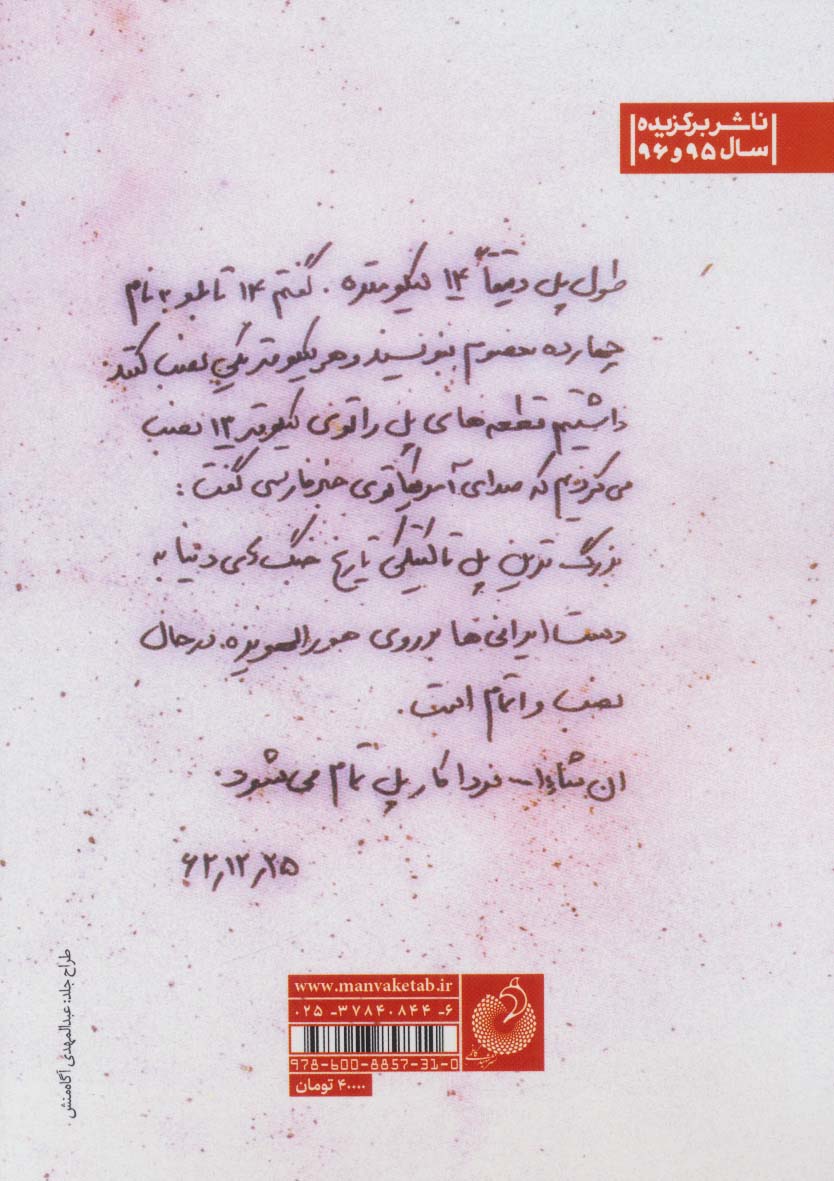 ناشر برگزیده
سال ۹۵ و ۹۶
طول پل دقیقاً ۱۴ کیلومتره. گفتم ۱۴ تابلو به نام
چهارده معصوم بنویسند و هر کیلومتر یکی نصب کنند
داشتیم قطعه‌های پل را توی کیلومتر ۱۳ نصب
می‌کردیم که صدای آمریکا توی خبر فارسی گفت:
بزرگ ترین پل تاکتیکی تاریخ جنگ‌های دنیا به
دست ایرانی‌ها بر روی هورالهویزه در حال
نصب و اتمام است.
ان شاءا... فردا کار پل تمام می‌شود.
۶۲,۱۲,۲۵
طراح جلد: عبدالمهدی آگاه‌منش
www.manvaketab.ir
۰۲۵ -۳۷۸۴۰۸۴۴ -۶
978-600-8857-31-0
۴۰۰۰۰ تومان